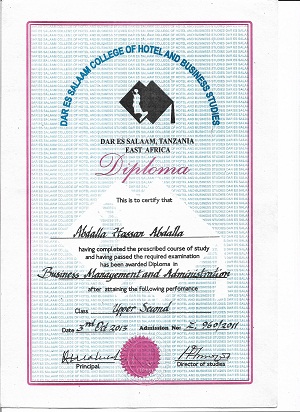 DAR ES SALAAM COLLEGE OF HOTEL AND BUSINESS STUDIES
DAR ES SALAAM, TANZANIA
EAST AFRICA
Diploma
This is to certify that
Abdalla Hassan Abdalla
having completed the prescribed course of study
and having passed the required examination
has been awarded Diploma in
Business Management and Administration
after attaining the following perfomance
Class Upper Second
Date 3rd Oct 2013 Admission No: E. 960/2011
Principal Director of studies